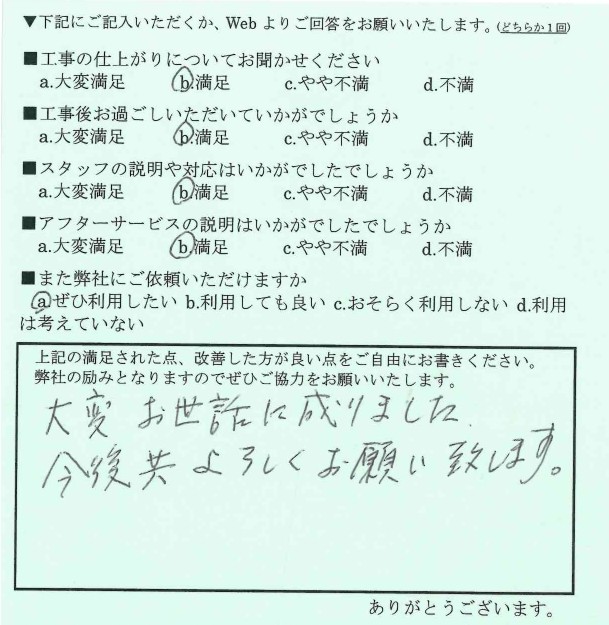 ▼下記にご記入いただくか、Webよりご回答をお願いいたします。(どちらか1回)
■工事の仕上がりについてお聞かせください
a.大変満足 b.満足 c.やや不満 d.不満
■工事後お過ごしいただいていかがでしょうか
a.大変満足 b.満足 c.やや不満 d.不満
■スタッフの説明や対応はいかがでしたでしょうか
a.大変満足 b.満足 c.やや不満 d.不満
■アフターサービスの説明はいかがでしたでしょうか
a.大変満足 b.満足 c.やや不満 d.不満
■また弊社にご依頼いただけますか
a.ぜひ利用したい b.利用しても良い c.おそらく利用しない d.利用
は考えていない
上記の満足された点、改善した方が良い点をご自由にお書きください。
弊社の励みとなりますのでぜひご協力をお願いいたします。
大変 お世話に成りました.
今後共 よろしくお願い致します。
ありがとうございます。